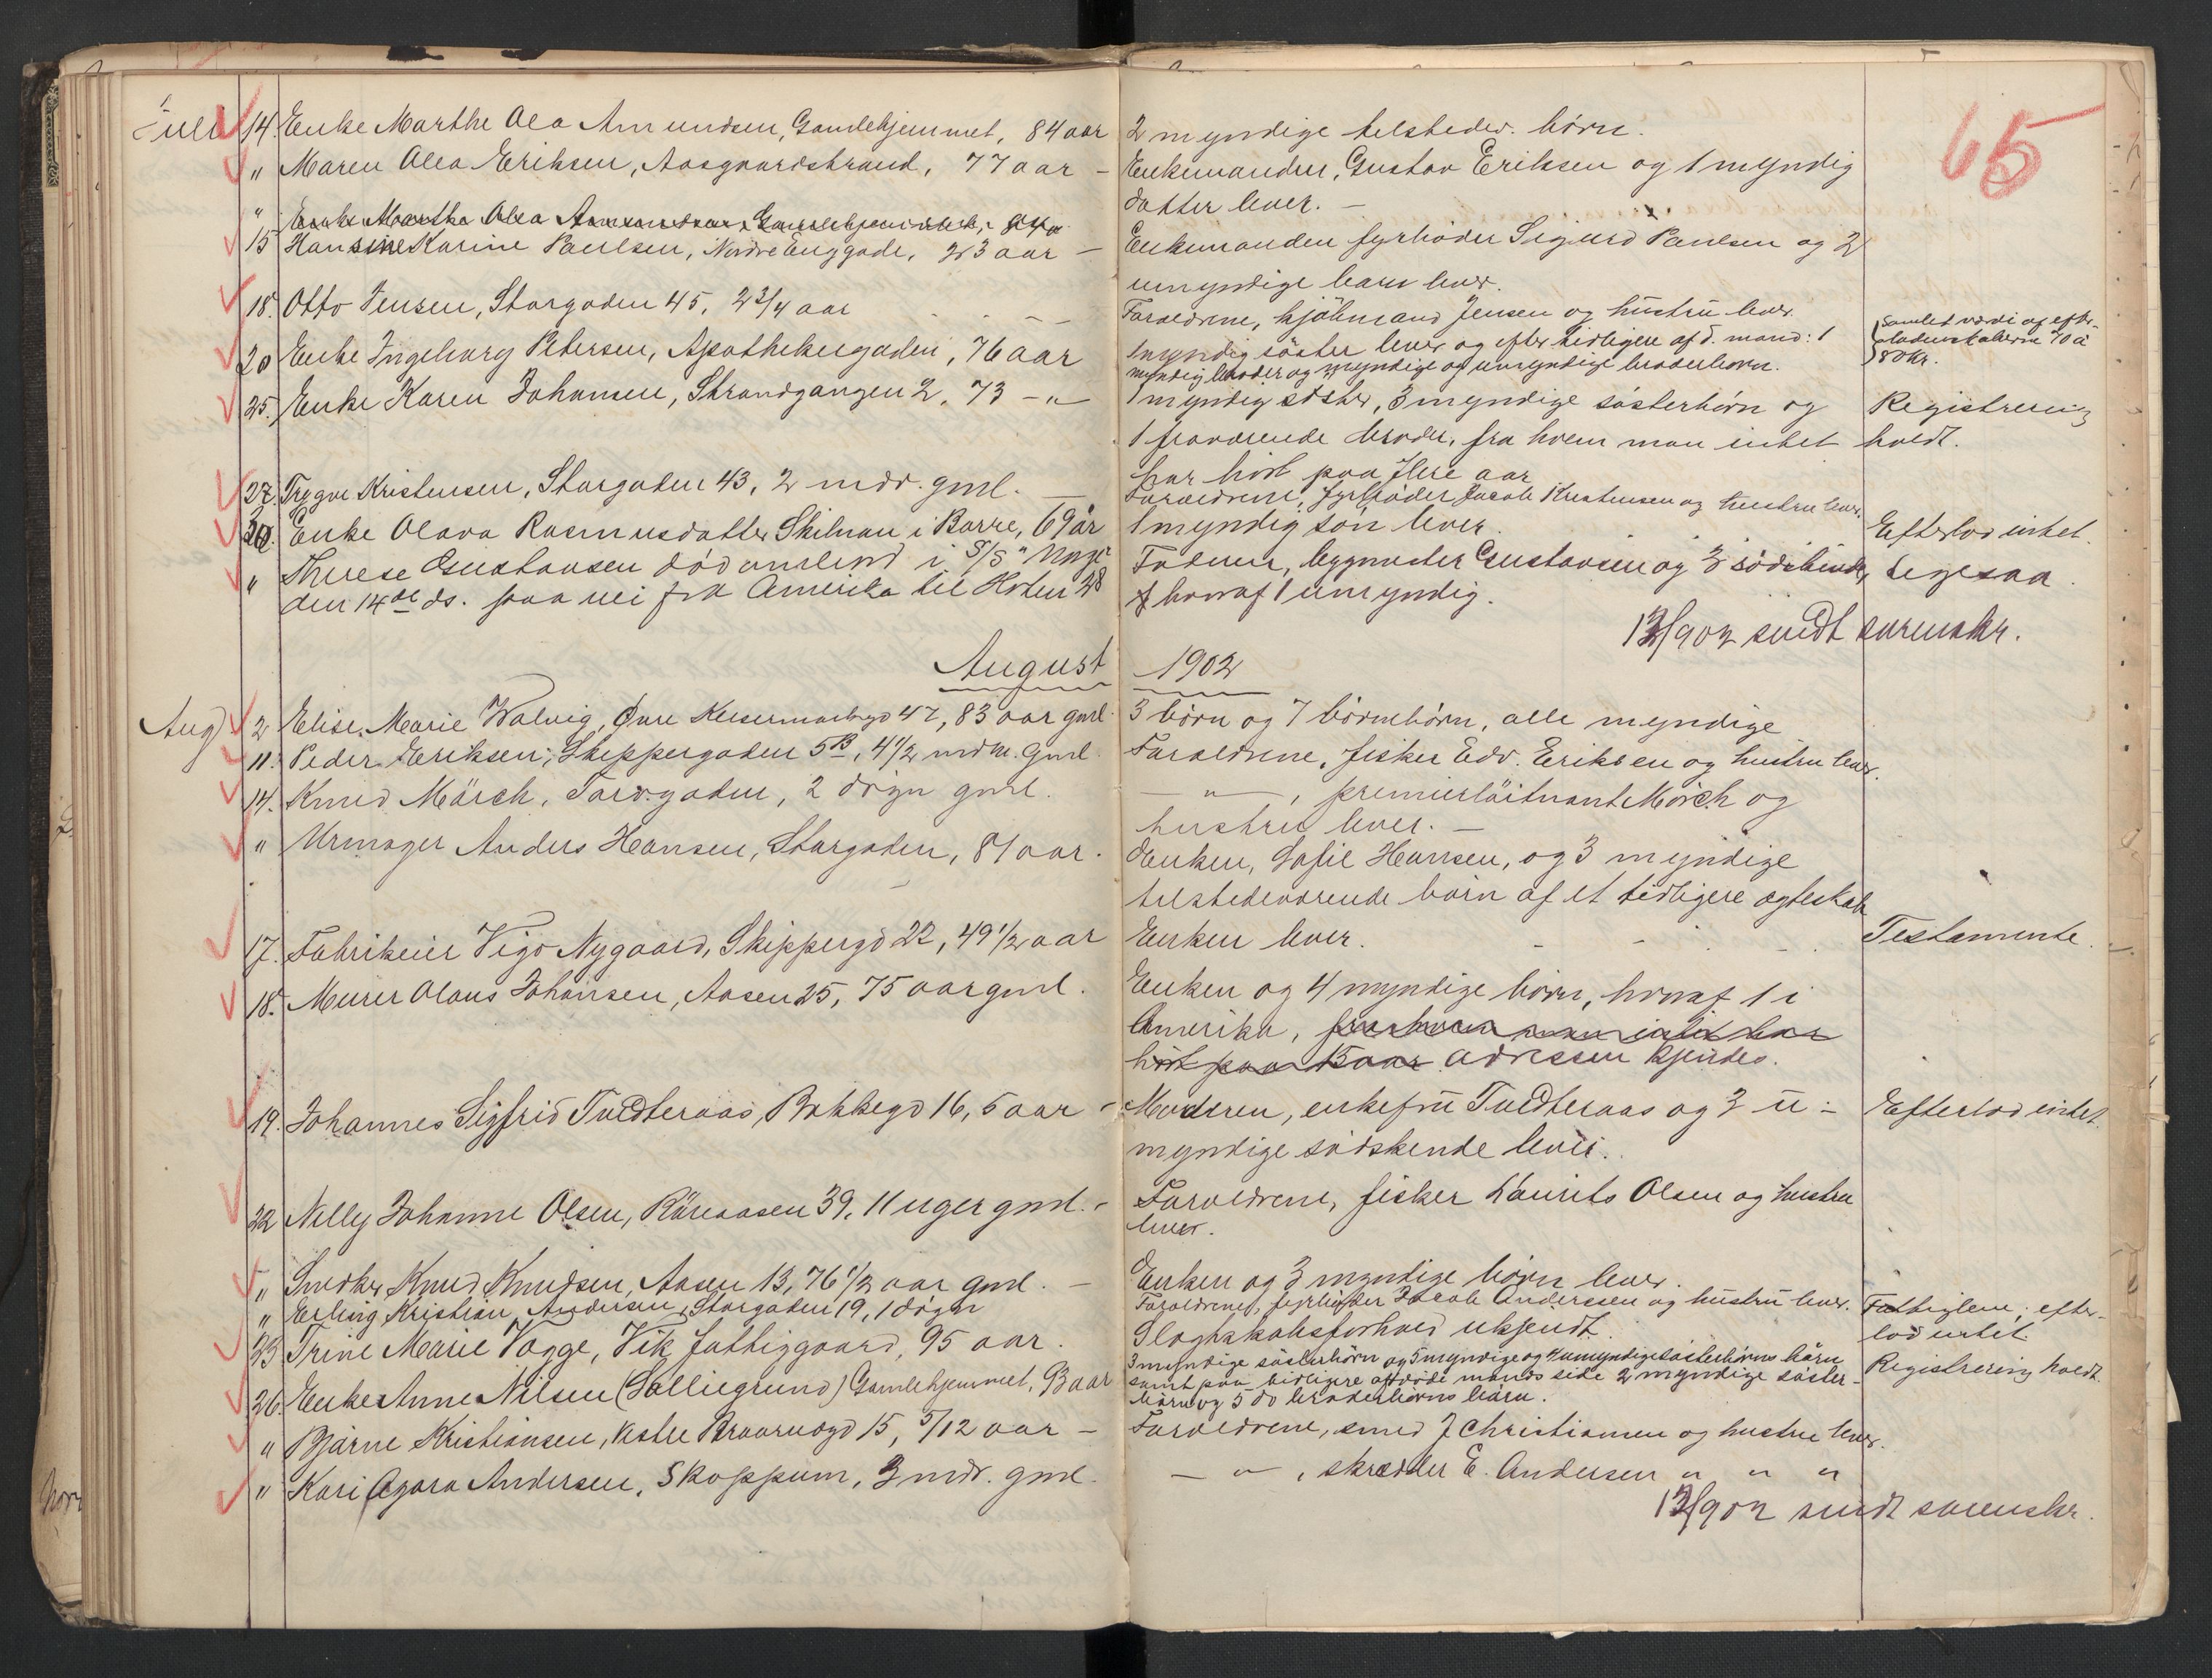 65
Juli 14. Enke Marthe Alea Amundsen, Gamlehjemmet, 84 aar
2 myndige tilstedev. børn.
" Maren Alea Eriksen, Aasgaardstrand, 77 aar –
Enkemanden, Gustav Eriksen og 1 myndig
datter lever. –
" Enke Marthe Alea Amundsen, Gamlehjemmet, 84 a
15 Hansine Karine Paulsen, Nordre Enggade, 23 aar –
Enkemanden fyrbøder Sigurd Paulsen og 2
umyndige barn lever.
18. Otto Jensen, Storgaden 45, 2 3/4 aar
Forældrene, kjøbmand Jensen og hustru lever.
20 Enke Ingeborg Petersen, Apothekergaden, 76 aar
1 myndig søster lever og efter tidligere afd. mand: 1
myndig broder og myndige og umyndige broderbørn.
Samlet værdi af efter-
ladenskaberne 70 à
80 kr.
25. Enke Karen Johansen, Strandgangen 2, 73 – " –
1 myndig søster, 3 myndige søsterbørn og
1 fraværende broder, fra hvem man intet
har hørt paa flere aar
Registrering
holdt.
27. Trygve Kristensen, Storgaden 43, 2 mdr. gml. –
Forældrene, fyrbøder Jacob Kristensen og hustru lever.
30. Enke Olava Rasmusdatter Skilnan i Borre, 69 år
1 myndig søn lever.
Efterlod intet.
" Therese Gustavsen død ombord i S/S "Norge"
den 14de ds. paa vei fra Amerika til Horten 28
Faderen, bygmester Gustavsen og 3 sødskende,
hvoraf 1 umyndig.
Ligesaa.
12/9 02 sendt sorenskr.
August 1902
Aug 2 Elise Marie Walvig, Øvre Keisermarksgd 47, 83 aar gml.
3 børn og 7 børnebørn, alle myndige
11. Peder Eriksen, Skippergaden 5B, 4 1/2 mdr. gml.
Forældrene, fisker Edv. Eriksen og hustru lever.
14. Knud Mörch, Torvgaden, 2 døgn gml.
– " –, premierløitnant Mörch og
hustru lever. –
" Urmager Anders Hansen, Storgaden, 81 aar.
Enken, Sofie Hansen, og 3 myndige
tilstedeværende børn af et tidligere ægteskab
17. Fabrikeier Vigo Nygaard, Skippergd 22, 49 1/2 aar
Enken lever.
Testamente.
18. Murer Olaus Johansen, Aasen 25, 75 aar gml.
Enken og 4 myndige børn, hvoraf 1 i
Amerika, fra hvem man intet har
hørt paa 15 aar adressen kjendes.
19. Johannes Sigfrid Tvedteraas, Bakkegd 16, 5 aar –
Moderen, enkefru Tvedteraas og 3 u-
myndige sødskende lever.
Efterlod intet.
22 Nelly Johanne Olsen, Røreaasen 39, 11 uger gml. –
Forældrene, fisker Laurits Olsen og hustru
lever.
" Smedkr Knud Knudsen, Aasen 13, 76 1/2 aar gml. –
Enken og 3 myndige børn lever.
" Erling Kristian Andersen, Storgaden 19, 1 døgn
Forældrene, fyrbøder Jacob Anderssen og hustru lever.
23 Trine Marie Vagge, Vik fattiggaard, 95 aar.
Slægtskabsforhold ukjendt.
Fattiglem; efter-
lod intet.
26. Enke Anne Nilsen (Salliegrund) Gamlehjemmet, 93 aar
3 myndige søsterbørn og 5 myndige og 4 umyndige søsterbørns børn
samt paa tidligere afdøde mands side 2 myndige søster-
børn og 5 do broderbørns børn.
Registrering holdt
" Bjarne Kristiansen, Vestre Braarudgd 15, 5/12 aar –
Forældrene, smed J Christiansen og hustru lever.
" Kari Agara Andersen, Skoppum, 3 mdr. gml.
– " –, skrædder E. Andersen " " "
12/9 02 sendt sorenskr.